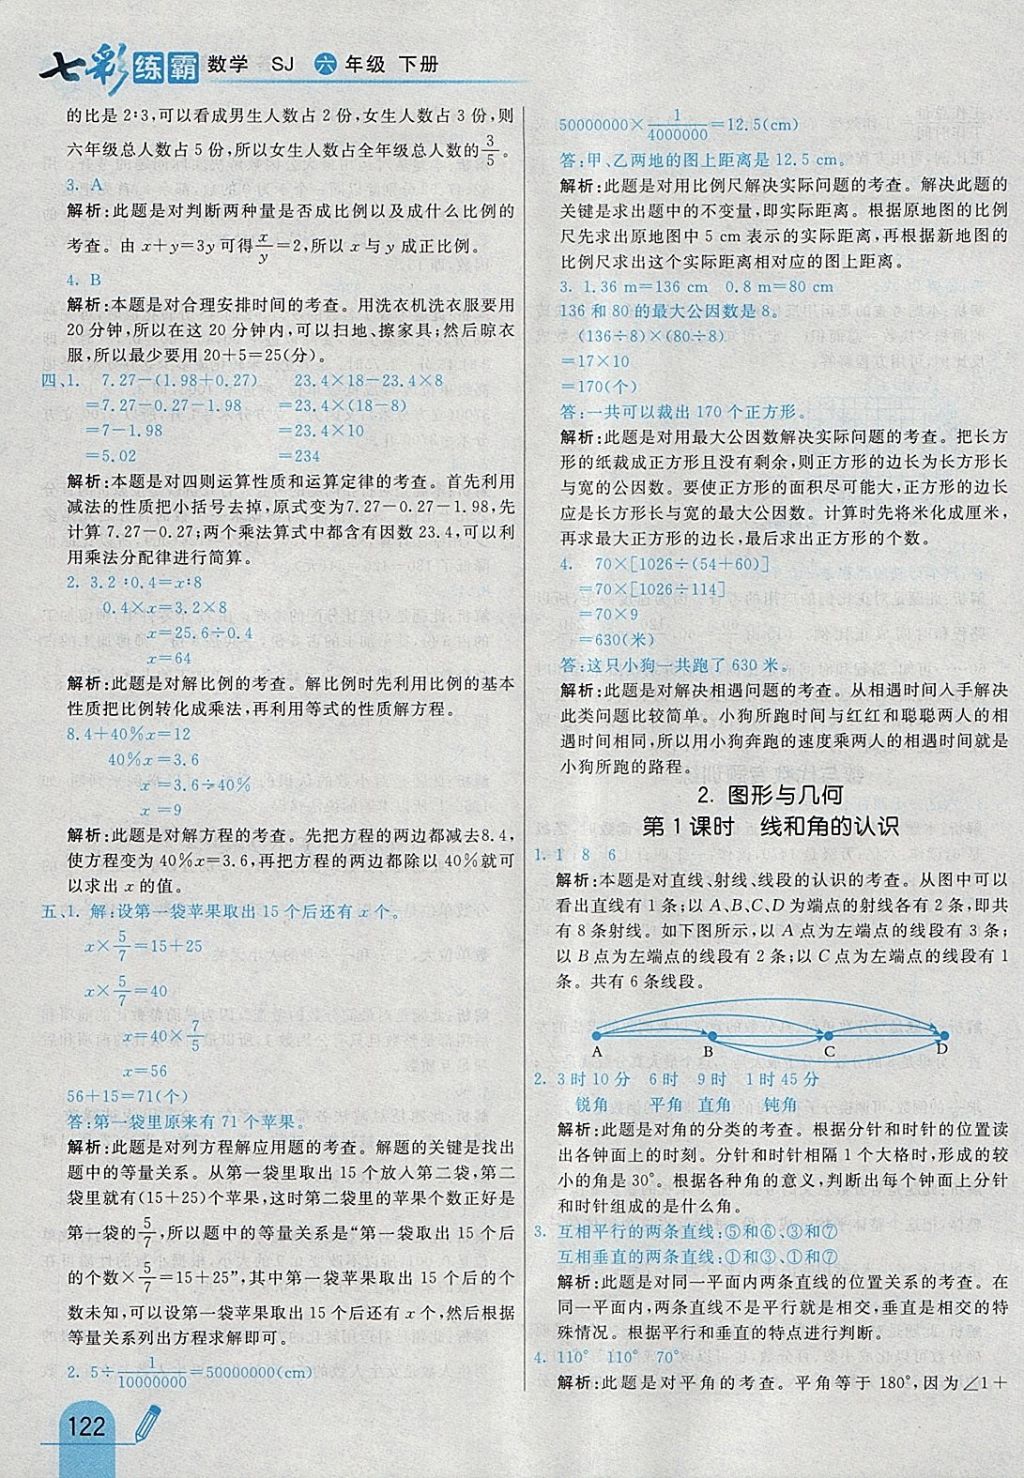 七彩练霸 数学 SJ 六年级 下册
的比是2∶3,可以看成男生人数占2份,女生人数占3份,则
六年级总人数占5份,所以女生人数占全年级总人数的3/5。
3. A
解析:此题是对判断两种量是否成比例以及成什么比例的
考查。由x+y=3y可得x/y=2,所以x与y成正比例。
4. B
解析:本题是对合理安排时间的考查。用洗衣机洗衣服要用
20分钟,所以在这20分钟内,可以扫地、擦家具;然后晾衣
服,所以最少要用20+5=25(分)。
四、1. 7.27-(1.98+0.27) 23.4×18-23.4×8
=7.27-0.27-1.98 =23.4×(18-8)
=7-1.98 =23.4×10
=5.02 =234
解析:本题是对四则运算性质和运算定律的考查。首先利用
减法的性质把小括号去掉,原式变为7.27-0.27-1.98,先
计算7.27-0.27;两个乘法算式中都含有因数23.4,可以利
用乘法分配律进行简算。
2. 3.2∶0.4=x∶8
0.4×x=3.2×8
x=25.6÷0.4
x=64
解析:此题是对解比例的考查。解比例时先利用比例的基本
性质把比例转化成乘法,再利用等式的性质解方程。
8.4+40%x=12
40%x=3.6
x=3.6÷40%
x=9
解析:此题是对解方程的考查。先把方程的两边都减去8.4,
使方程变为40%x=3.6,再把方程的两边都除以40%就可
以求出x的值。
五、1. 解:设第一袋苹果取出15个后还有x个。
x×5/7=15+25
x×5/7=40
x=40×7/5
x=56
56+15=71(个)
答:第一袋里原来有71个苹果。
解析:此题是对列方程解应用题的考查。解题的关键是找出
题中的等量关系。从第一袋里取出15个放入第二袋,第二
袋里就有(15+25)个苹果,这时第二袋里的苹果个数正好是
第一袋的5/7,所以题中的等量关系是“第一袋取出15个后
的个数×5/7=15+25”,其中第一袋苹果取出15个后的个
数未知,可以设第一袋苹果取出15个后还有x个,然后根据
等量关系列出方程求解即可。
2. 5÷1/10000000=50000000(cm)
122
50000000×1/4000000=12.5(cm)
答:甲、乙两地的图上距离是12.5 cm。
解析:此题是对用比例尺解决实际问题的考查。解决此题的
关键是求出题中的不变量,即实际距离。根据原地图的比例
尺先求出原地图中5 cm表示的实际距离,再根据新地图的
比例尺求出这个实际距离相对应的图上距离。
3. 1.36 m=136 cm 0.8 m=80 cm
136和80的最大公因数是8。
(136÷8)×(80÷8)
=17×10
=170(个)
答:一共可以裁出170个正方形。
解析:此题是对用最大公因数解决实际问题的考查。把长方
形的纸裁成正方形且没有剩余,则正方形的边长为长方形长
与宽的公因数。要使正方形的面积尽可能大,正方形的边长
应是长方形长与宽的最大公因数。计算时先将米化成厘米,
再求最大正方形的边长,最后求出正方形的个数。
4. 70×[1026÷(54+60)]
=70×[1026÷114]
=70×9
=630(米)
答:这只小狗一共跑了630米。
解析:此题是对解决相遇问题的考查。从相遇时间入手解决
此类问题比较简单。小狗所跑时间与红红和聪聪两人的相
遇时间相同,所以用小狗奔跑的速度乘两人的相遇时间就是
小狗所跑的路程。
2. 图形与几何
第1课时 线和角的认识
1. 1 8 6
解析:本题是对直线、射线、线段的认识的考查。从图中可以
看出直线有1条;以A、B、C、D为端点的射线各有2条,即共
有8条射线。如下图所示,以A点为左端点的线段有3条;
以B点为左端点的线段有2条;以C点为左端点的线段有1
条。共有6条线段。
A B C D
2. 3时10分 6时 9时 1时45分
锐角 平角 直角 钝角
解析:此题是对角的分类的考查。根据分针和时针的位置读
出各钟面上的时刻。分针和时针相隔1个大格时,形成的较
小的角是30°。根据各种角的意义,判断出每个钟面上分针
和时针组成的是什么角。
3. 互相平行的两条直线:⑤和⑥、③和⑦
互相垂直的两条直线:①和③、①和⑦
解析:此题是对同一平面内两条直线的位置关系的考查。在
同一平面内,两条直线不是平行就是相交,垂直是相交的特
殊情况。根据平行和垂直的特点进行判断。
4. 110° 110° 70°
解析:此题是对平角的考查。平角等于180°,因为∠1+